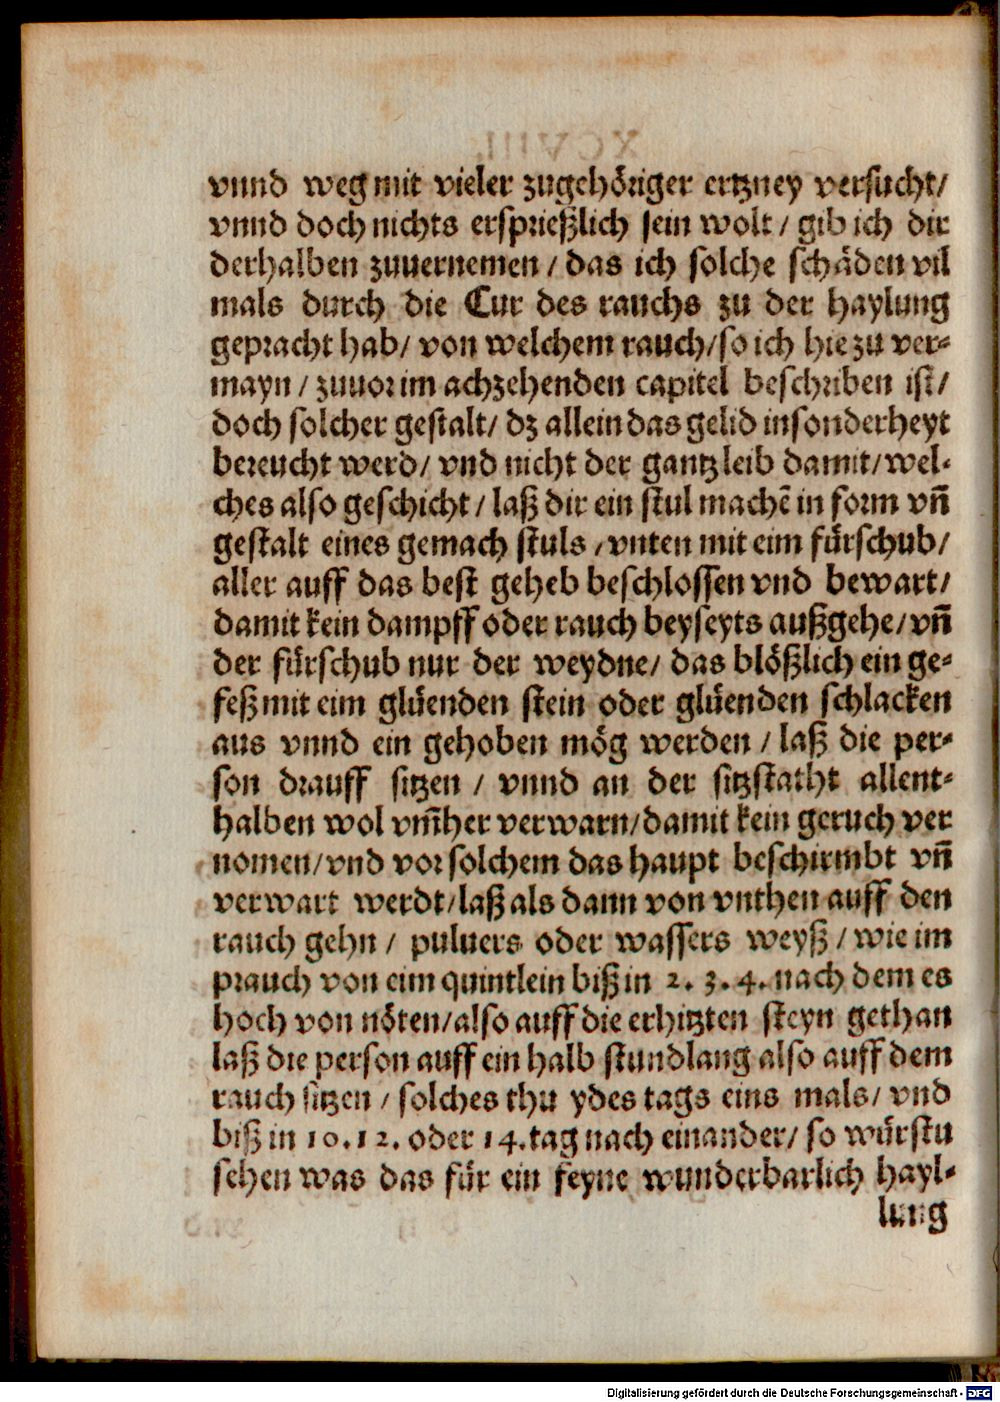 vnnd weg mit vieler zugehöriger ertzney versucht/
vnnd doch nichts ersprießlich sein wolt / gib ich dir
derhalben zuuernemen / das ich solche schäden vil
mals durch die Cur des rauchs zu der haylung
gepracht hab/ von welchem rauch/so ich hie zu ver-
mayn / zuuor im achzehenden capitel beschriben ist/
doch solcher gestalt/ dz allein das gelid insonderheyt
bereucht werd/ vnd nicht der gantz leib damit/wel-
ches also geschicht / laß dir ein stul machē in form vñ
gestalt eines gemach stuls / vnten mit eim fürschub/
aller auff das best geheb beschlossen vnd bewart/
damit kein dampff oder rauch beyseyts außgehe/vñ
der fürschub nur der weydne/ das blößlich ein ge-
feß mit eim glüenden stein oder glüenden schlacken
aus vnnd ein gehoben mög werden / laß die per-
son drauff sitzen / vnnd an der sitzstatht allent-
halben wol vm̃her verwarn/damit kein geruch ver
nomen/vnd vor solchem das haupt beschirmbt vñ
verwart werdt/laß als dann von vnthen auff den
rauch gehn / puluers oder wassers weyß / wie im
prauch von eim quintlein biß in 2. 3. 4. nach dem es
hoch von nöten/also auff die erhitzten steyn gethan
laß die person auff ein halb stundlang also auff dem
rauch sitzen / solches thu ydes tags eins mals/ vnd
biß in 10. 12. oder 14. tag nach einander/ so würstu
sehen was das für ein feyne wunderbarlich hayl-
lung
Digitalisierung gefördert durch die Deutsche Forschungsgemeinschaft - DFG